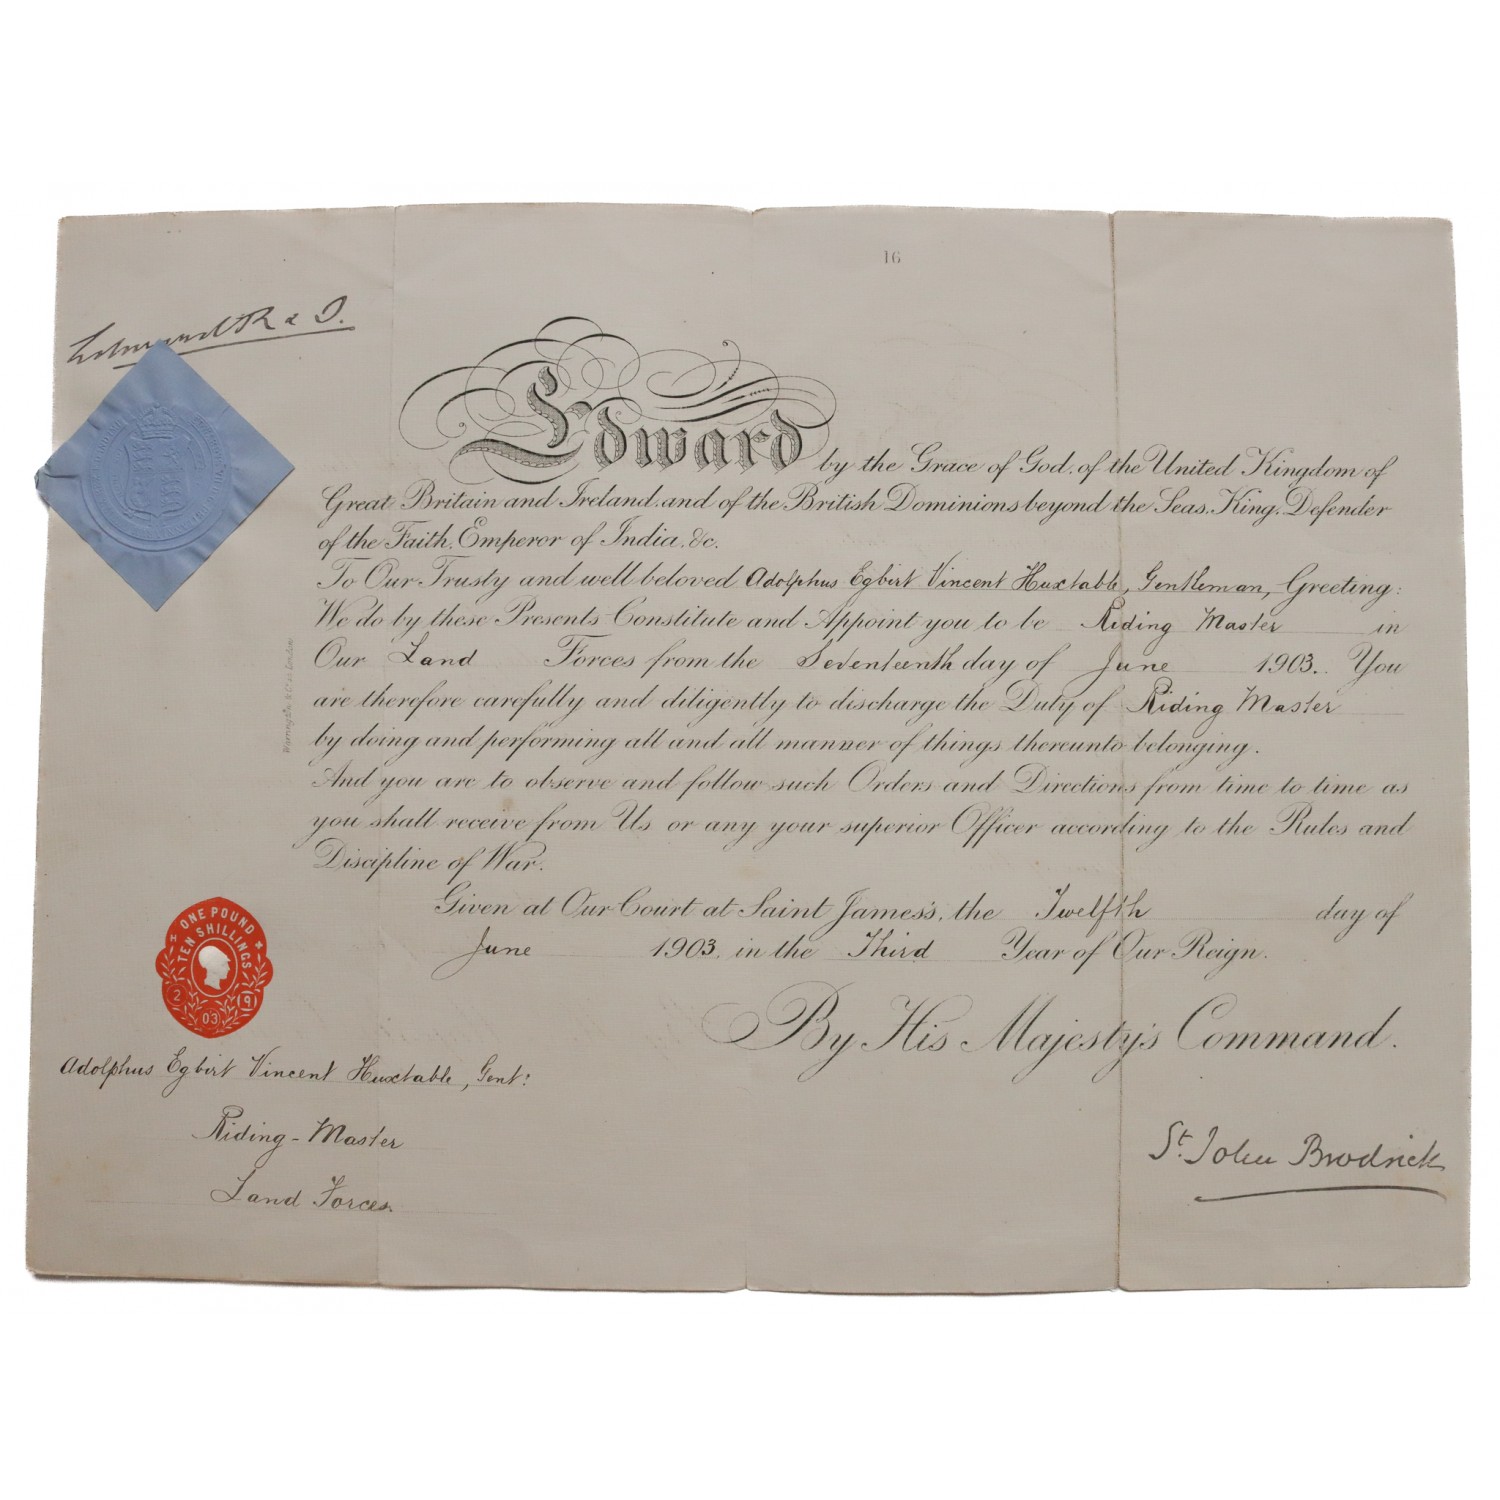 16
Edward R & I.
Edward by the Grace of God, of the United Kingdom of
Great Britain and Ireland, and of the British Dominions beyond the Seas, King, Defender
of the Faith, Emperor of India, &c.
To Our Trusty and well beloved Adolphus Egbirt Vincent Huxtable, Gentleman, Greeting:
We do by these Presents Constitute and Appoint you to be Riding Master in
Our Land Forces from the Seventeenth day of June 1903. You
are therefore carefully and diligently to discharge the Duty of Riding Master
by doing and performing all and all manner of things thereunto belonging.
And you are to observe and follow such Orders and Directions from time to time as
you shall receive from Us or any your superior Officer according to the Rules and
Discipline of War.
Given at Our Court at Saint James's, the Twelfth day of
June 1903, in the Third Year of Our Reign.
By His Majesty's Command.
ONE POUND
TEN SHILLINGS
2 9
03
Adolphus Egbirt Vincent Huxtable, Gent:
Riding-Master
Land Forces.
St. John Brodrick